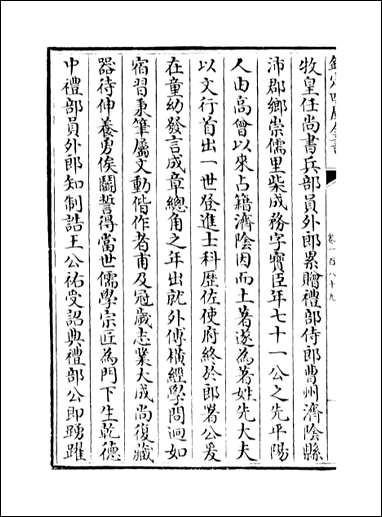 欽定四庫全書
卷一百八十九
牧皇任尚書兵部員外郎累贈禮部侍郎曹州濟陰縣
沛郡鄉崇儒里柴成務字寶臣年七十一公之先平陽
人由高曾以來占籍濟陰因而土著遂為著姓先大夫
以文行首出一世登進士科歷佐使府終於郎署公爰
在童幼發言成章總角之年出就外傅横經學問迥如
宿習秉筆屬文動偕作者甫及冠歲志業大成尚復藏
器待伸養勇俟鬬誓得當世儒學宗匠為門下生乾德
中禮部員外郎知制誥王公祐受詔典禮部公即踴躍